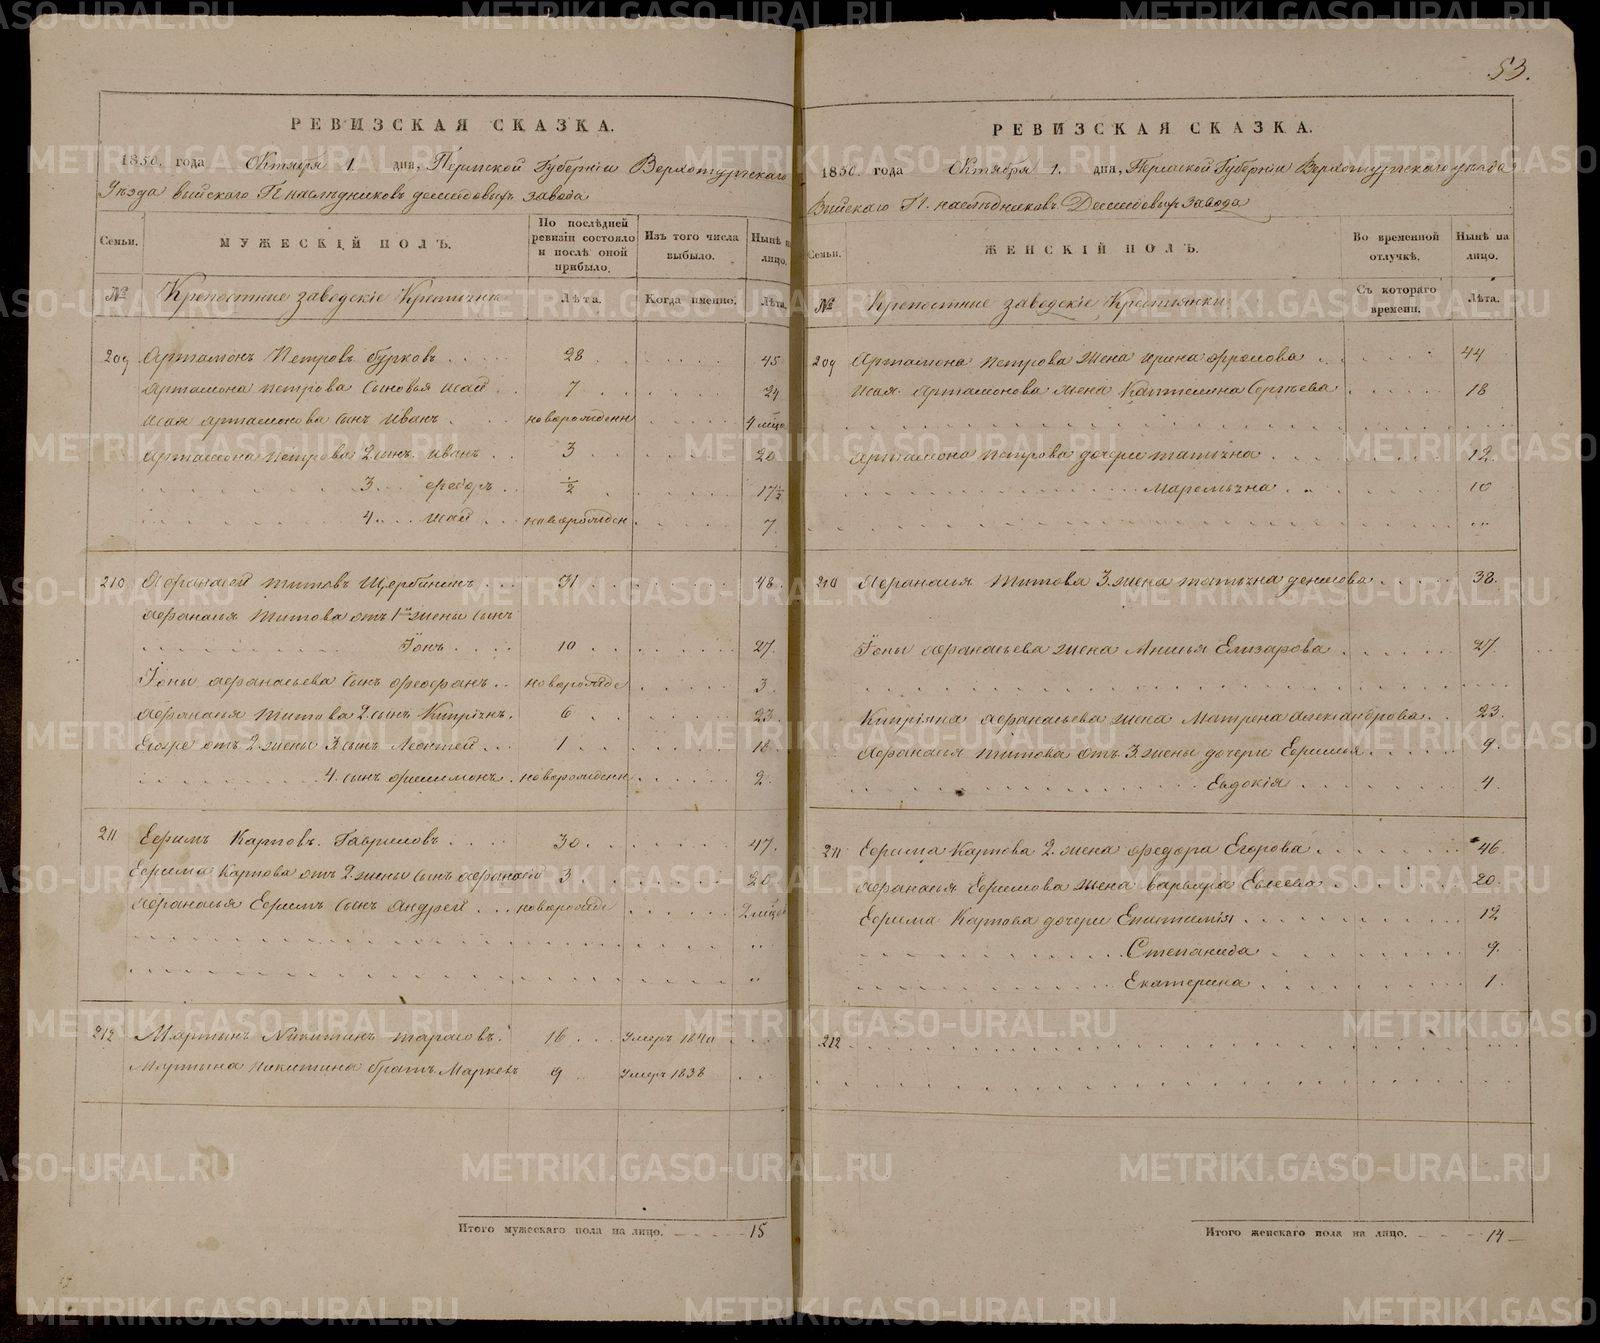 53.
РЕВИЗСКАЯ СКАЗКА.
1850. года Октября 1. дня, Пермской Губерніи Верхотурскаго
Уезда Выйскаго Г. наследниковъ демидовыхъ завода
Семьи.
МУЖЕСКІЙ ПОЛЪ.
По послѣдней ревизіи состояло и послѣ оной прибыло.
Изъ того числа выбыло.
Нынѣ на лицо.
№
Крепостные заводскіе Крестьяне
Лѣта.
Когда именно.
Лѣта.
209 Артамонъ Петровъ бурковъ 28 45
Артамона петрова Сыновья исай 7 24
Исая артамонова сынъ иванъ новорожденн 4 мѣсц
Артамона петрова 2 сынъ иванъ 3 20
3 федоръ ½ 17½
4 исай новорожден 7
210 Афанасей титовъ Щербининъ 31 48
Афанасья титова отъ 1й жены сынъ
Іонъ 10 27.
Іоны афанасьева сынъ феофанъ новорожде 3
Афанасья титова 2 сынъ Кипріянъ. 6 23
Егоже отъ 2 жены 3 сынъ Леонтей 1 18
4. сынъ филимонъ новорожденн 2
211 Ефимъ Карповъ. Гавриловъ 30 47.
Ефима Карпова отъ 2 жены сынъ афанасій 3 20
Афанасья Ефимъ сынъ андрей новорожде 2 мѣсц
212 Мартынъ Никитинъ тарасовъ. 16 Умеръ 1840
Мартына никитина братъ Маркелъ 9 Умеръ 1838
Итого мужескаго пола на лицо. 15
РЕВИЗСКАЯ СКАЗКА.
1850. года Октября 1. дня, Пермской Губерніи Верхотурскаго уезда
Выйскаго Г. наследниковъ Демидовыхъ завода
Семьи.
ЖЕНСКІЙ ПОЛЪ.
Во временной отлучкѣ.
Нынѣ на лицо.
№
Крепостные заводскіе Крестьянки
Съ котораго времени.
Лѣта.
209 Артамона петрова жена ирина фролова 44
Исая артамонова жена Кате­рина Сергѣева 18
Артамона петрова дочери татьяна 12
Маремьяна 10
210 Афанасья титова 3 жена татьяна денисова 38.
Іоны афанасьева жена Анисья Елизарова 27
Кипріяна афанасьева жена Матрена александрова 23
Афанасья титова отъ 3 жены дочери Ефимья 9
Евдокія 4
211 Ефима Карпова 2 жена федора Егорова 46
Афанасья Ефимова жена варвара Евсеева 20
Ефима Карпова дочери Епистимія 12
Степанида 9.
Екатерина 1
212
Итого женскаго пола на лицо. 14
METRIKI.GASO-URAL.RU